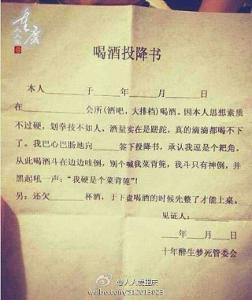 重庆
人人爱
喝酒投降书
本人____于____年____月____日
在________会所(酒吧，大排档)喝酒。因本人思想素质
不过硬，划拳技不如人，酒量实在是蹉跎，真的滴滴都喝不下
了。我巴心巴肠地向______签下投降书，承认我逗是个耙角。
从此喝酒斗在边边哇倒，别个喊我菜背篼，我斗只有神倒，并
黑起吼一声："我硬是个菜背篼！"
另：还欠______杯酒，于下盘喝酒的时候先整了才能上桌。
见证人：______
__年__月__日
十年醉生梦死管委会
@人人爱重庆
weibo.com/312013023